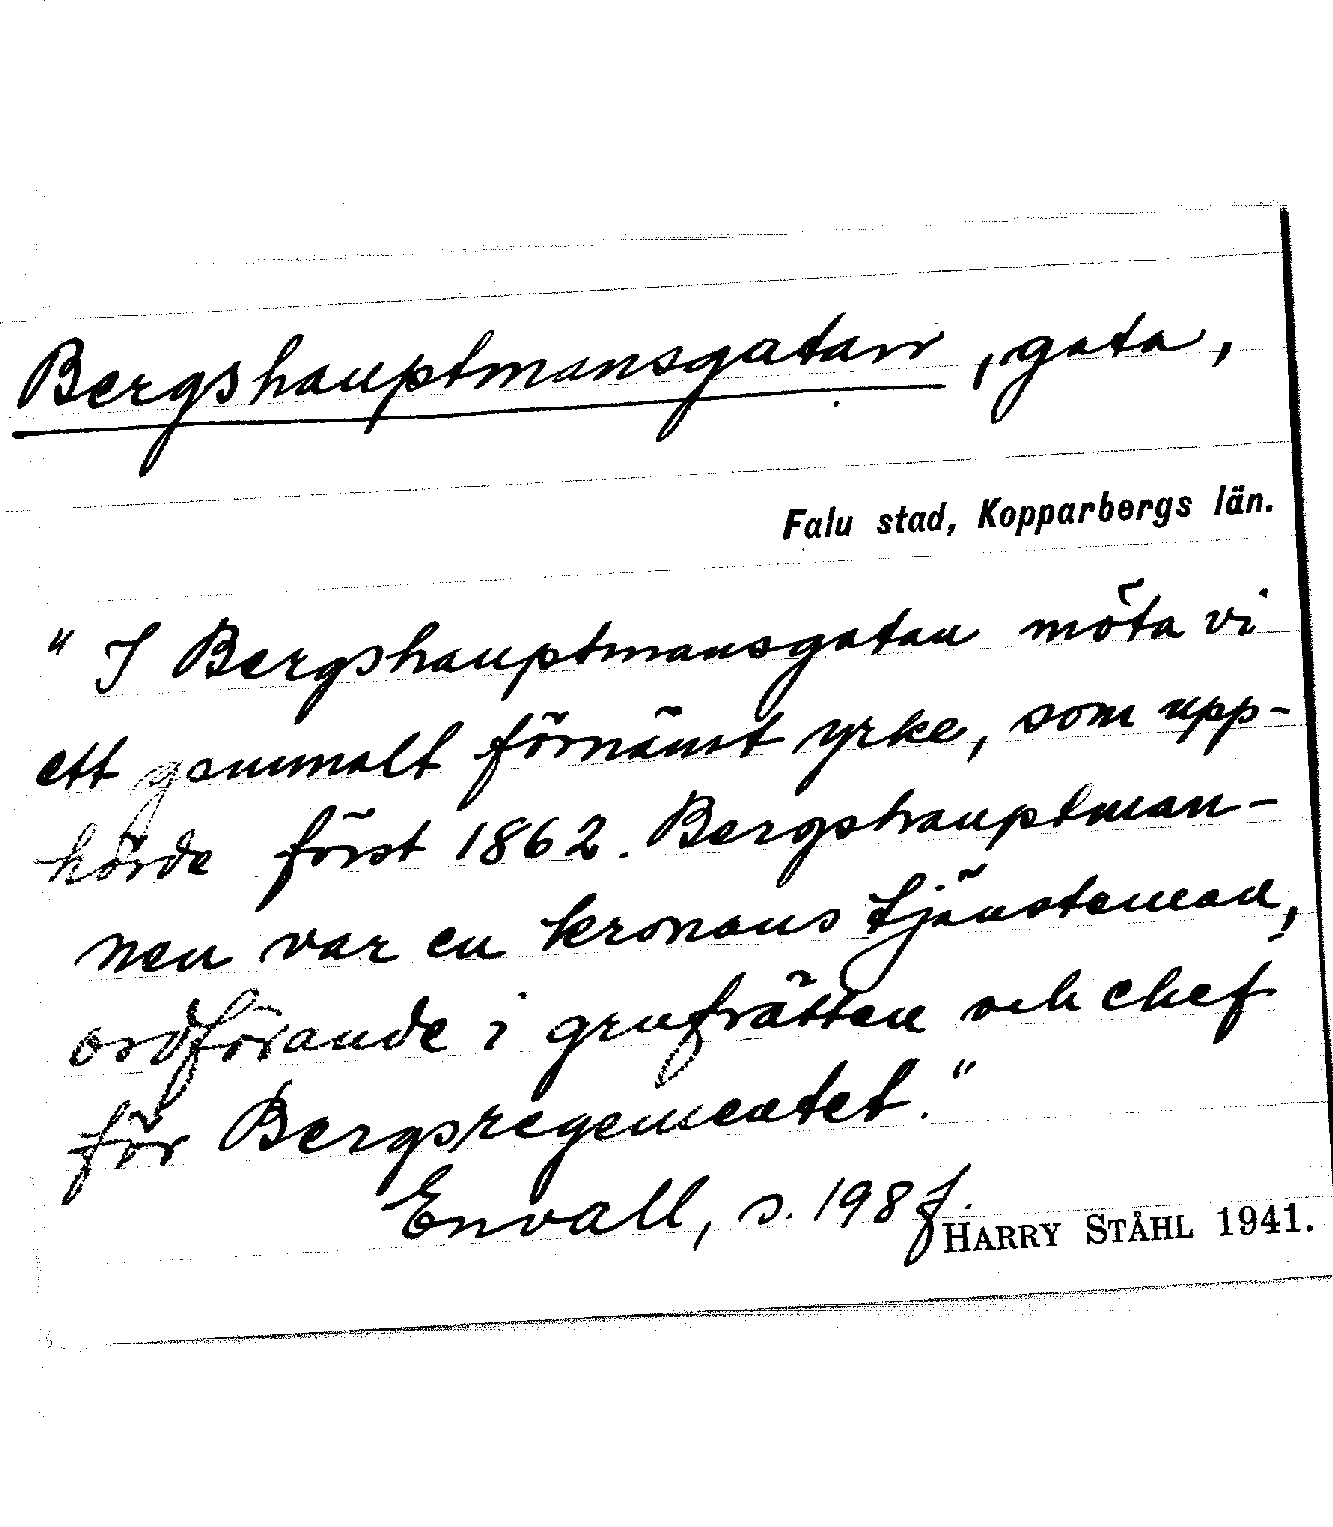 Bergshauptmansgatan, gata,
Falu stad, Kopparbergs län.
"I Bergshauptmansgatan möta vi
ett gammalt förnämt yrke, som upp-
hörde först 1862. Bergshauptman-
nen var en kronans tjänsteman,
ordförande i grufrätten och chef
för Bergsregementet."
Envall, s. 198 f.
HARRY STÅHL 1941.